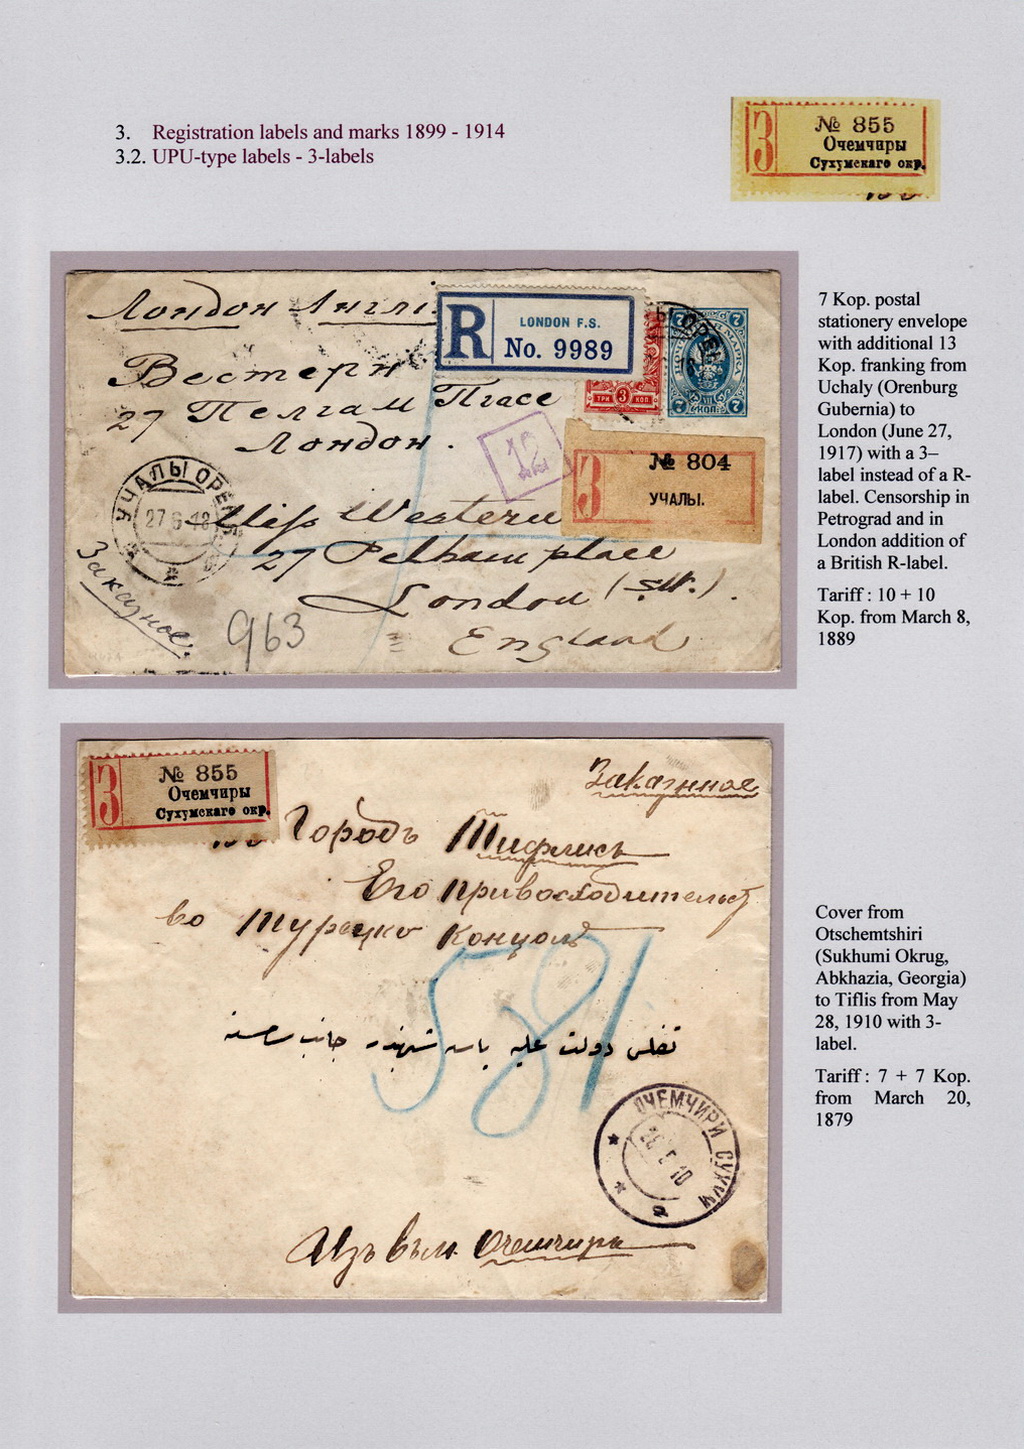 3. Registration labels and marks 1899 - 1914
3.2. UPU-type labels - 3-labels
З
№ 855
Очемчиры
Сухумскаго окр.
Лондон Англі
R
LONDON F.S.
No. 9989
Вестерн
27 Пелгам Пласе
Лондон.
ТРИ 3 КОП.
7 7
7 КОП. 7
12
З
№ 804
УЧАЛЫ.
УЧАЛЫ ОРЕНБ
27 6 18
Miss Western
27 Pelham place
London (S.W.).
England
Заказное.
963
7 Kop. postal
stationery envelope
with additional 13
Kop. franking from
Uchaly (Orenburg
Gubernia) to
London (June 27,
1917) with a 3–
label instead of a R-
label. Censorship in
Petrograd and in
London addition of
a British R-label.
Tariff : 10 + 10
Kop. from March 8,
1889
З
№ 855
Очемчиры
Сухумскаго окр.
Заказнное
Городъ Тифлисъ
Его привосходительст
во Турецко Концолъ
581
تفلس دولت علیه
ОЧЕМЧИРИ СУХУМ
28 5 10
а
Изъ вым. Очемчиры
Cover from
Otschemtshiri
(Sukhumi Okrug,
Abkhazia, Georgia)
to Tiflis from May
28, 1910 with 3-
label.
Tariff : 7 + 7 Kop.
from March 20,
1879